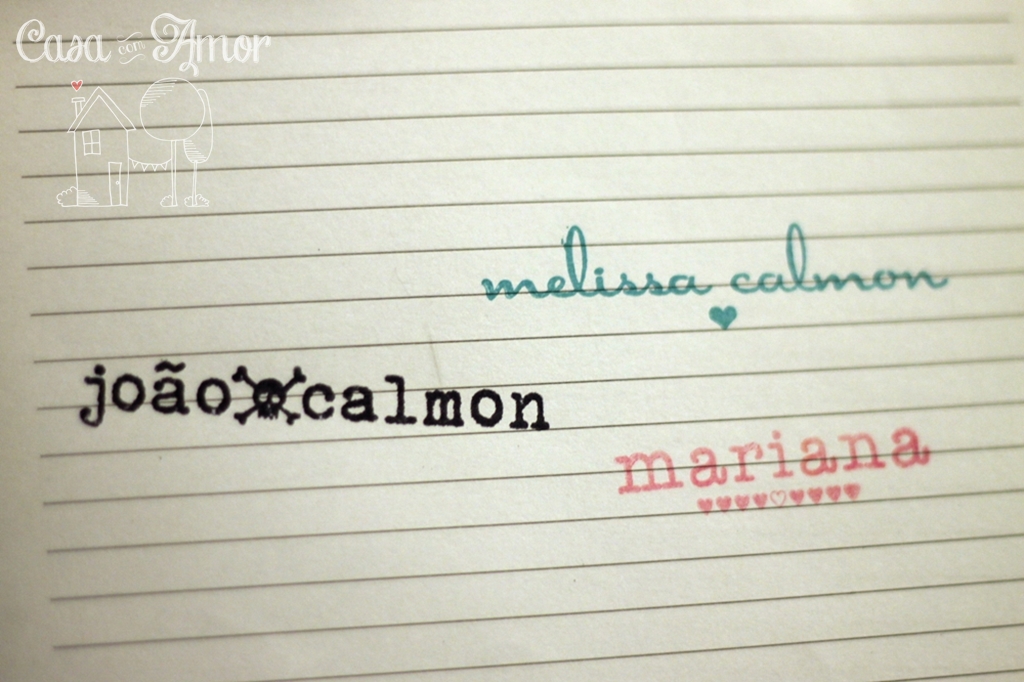 Casa com Amor
melissa calmon
joão calmon
mariana